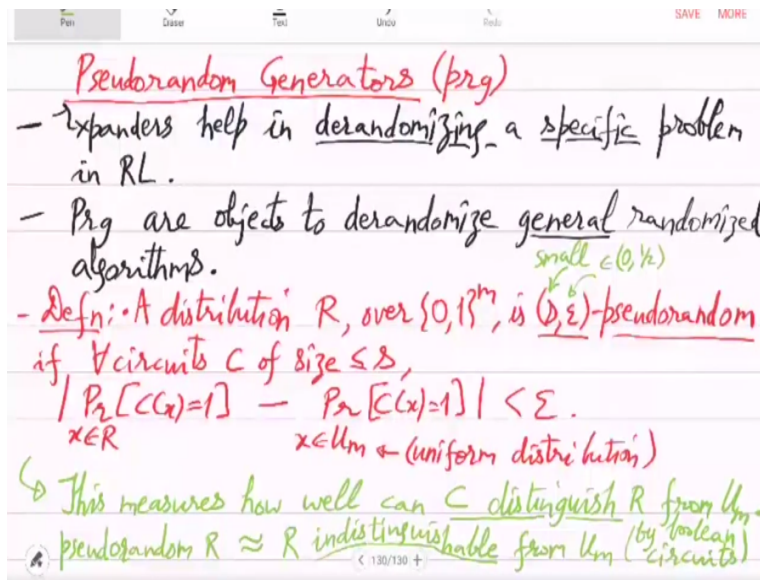 Pen Eraser Text Undo Redo SAVE MORE
Pseudorandom Generators (prg)
- Expanders help in derandomizing a specific problem
in RL.
- Prg are objects to derandomize general randomized
algorithms.
small ∈(0,½)
- Defn: • A distribution R, over {0,1}^m, is (s,ε)-pseudorandom
if ∀circuits C of size ≤s,
| Pr[C(x)=1] - Pr[C(x)=1] | < ε.
x∈R x∈Um ← (uniform distribution)
↳ This measures how well can C distinguish R from Um.
pseudorandom R ≈ R indistinguishable from Um (by boolean
circuits)
< 130/130 +